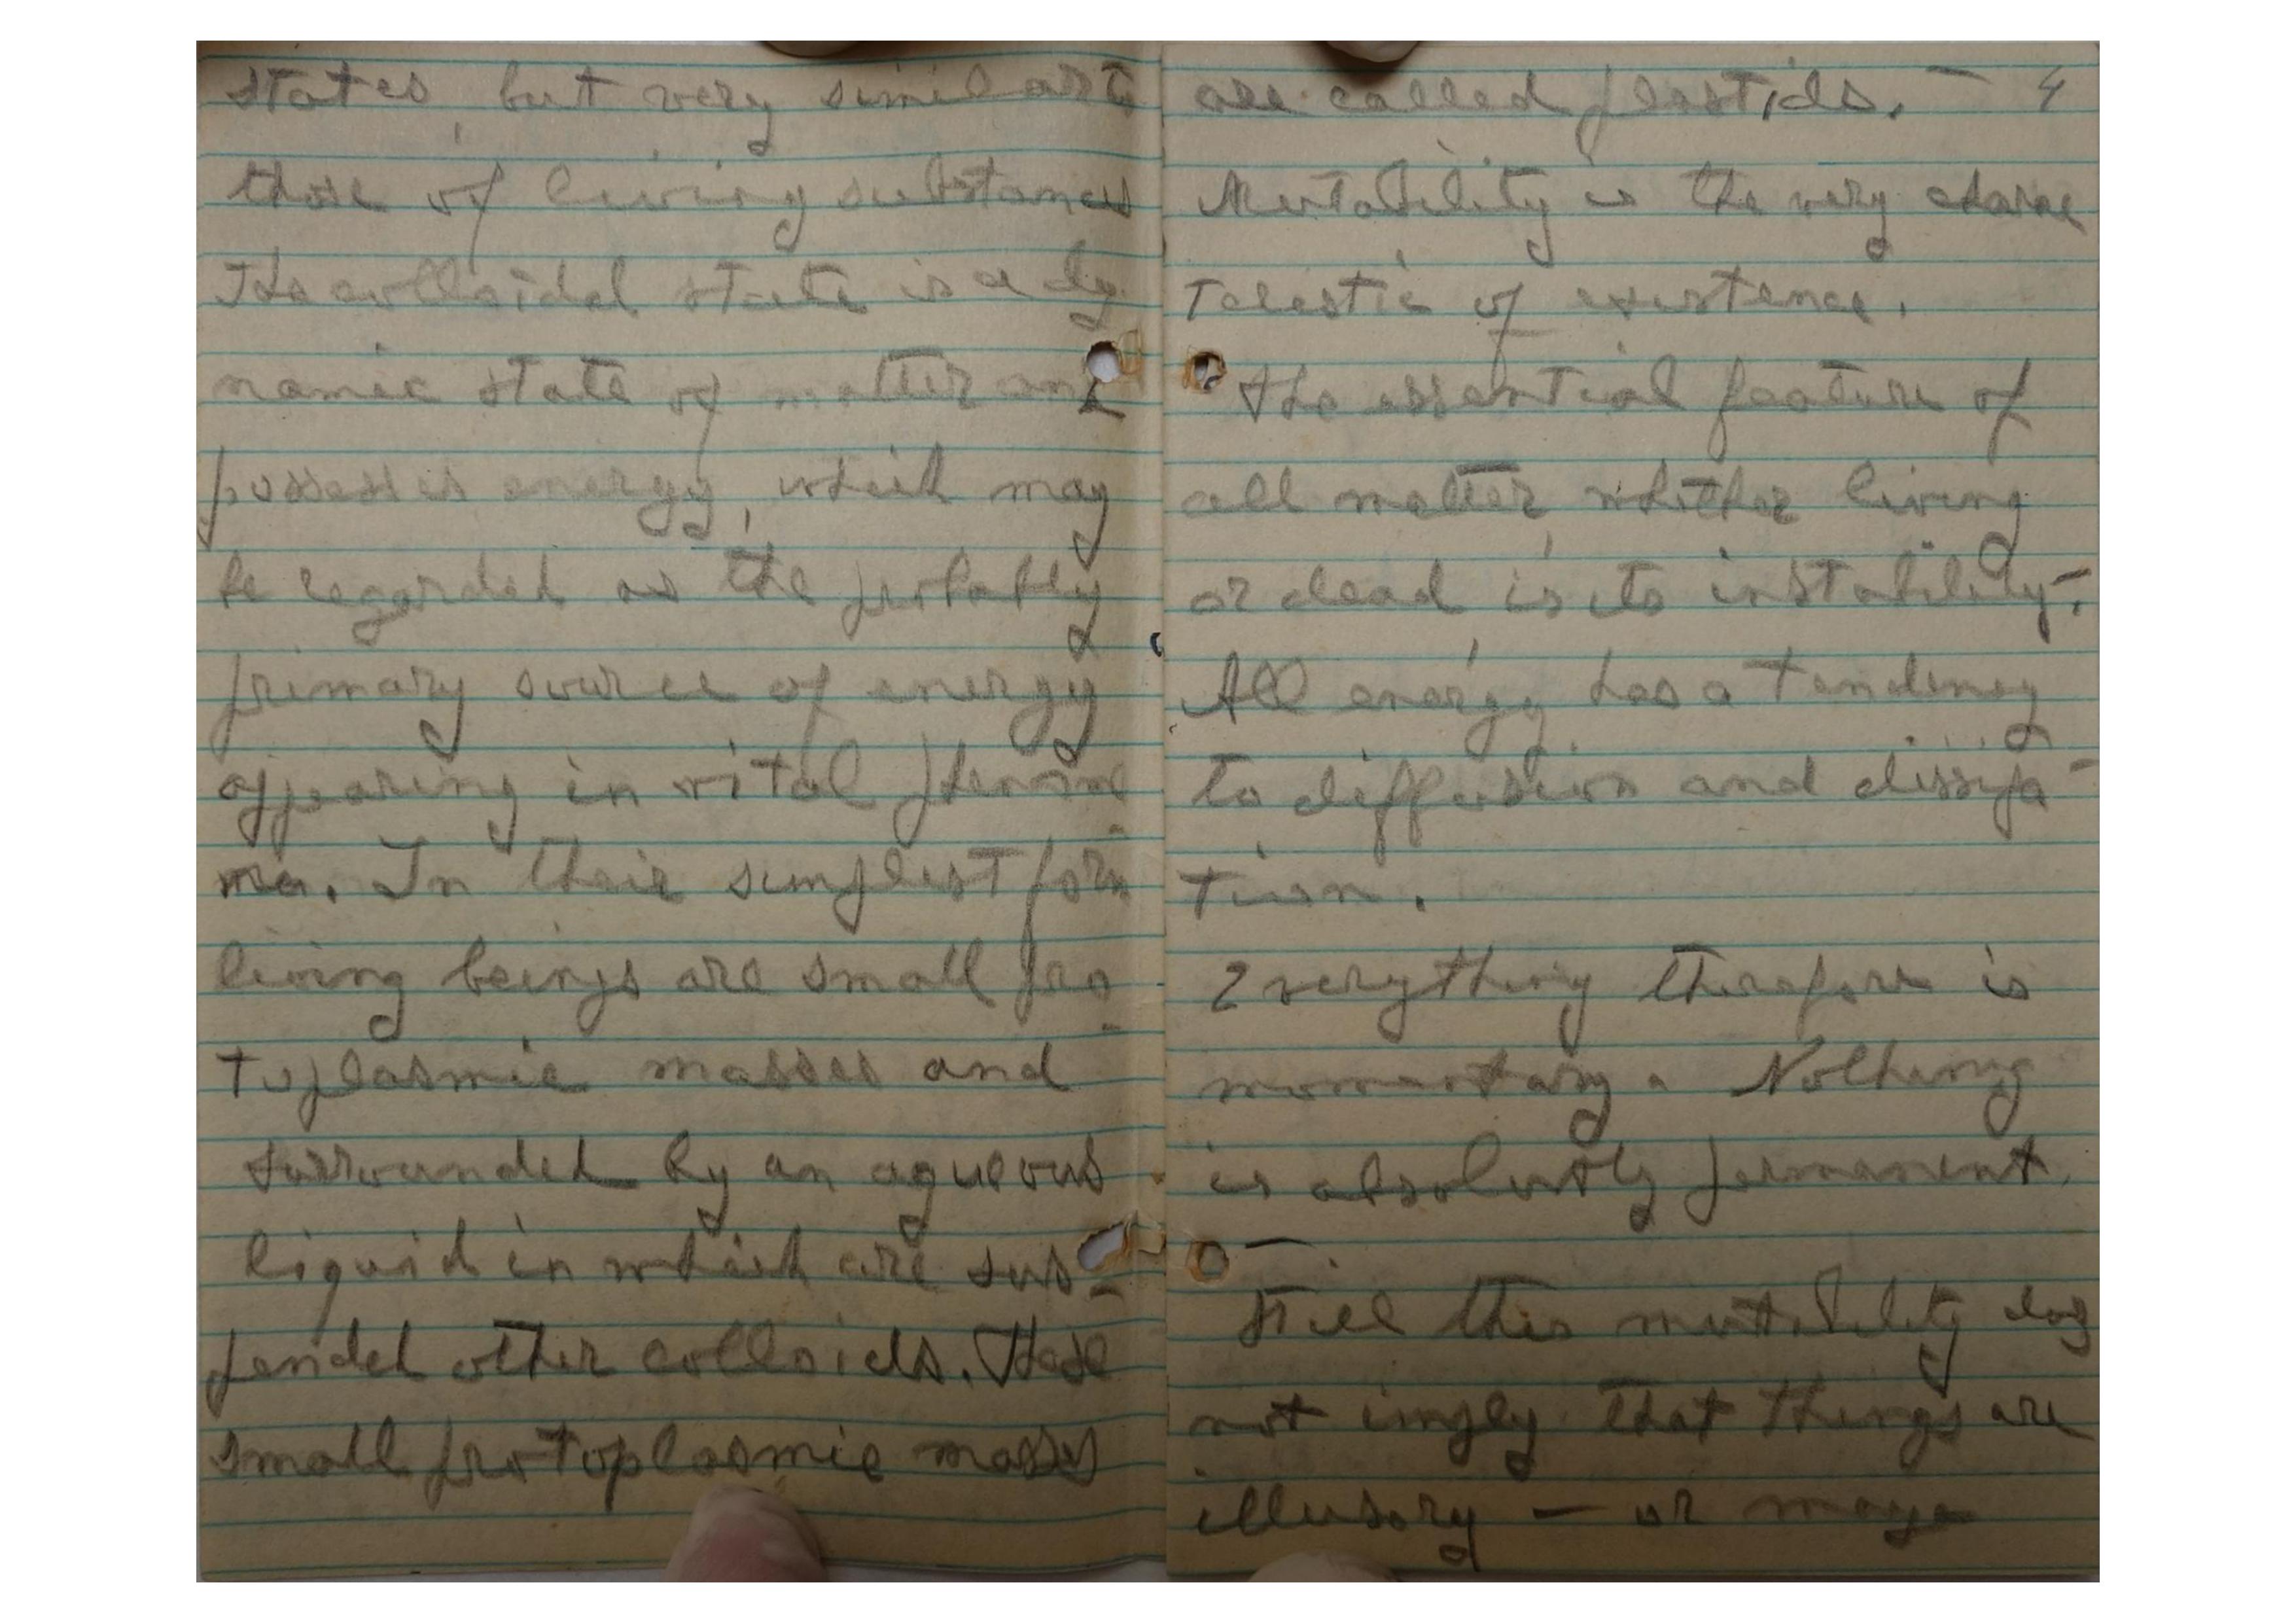 states, but very similar to
those of living substances
The colloidal state is a dy
namic state of matter and
possesses energy, which may
be regarded as the probably
primary source of energy
appearing in vital phenome-
na. In their simplest form
living beings are small pro-
toplasmic masses and
surrounded by an aqueous
liquid in which are sus-
pended other colloids. These
small protoplasmic masses
are called plastids. — 4
Mutability is the very charac
teristic of existence.
The essential feature of
all matter, whether living
or dead is its instability.
All energy has a tendency
to diffusion and dissipa-
tion.
Everything therefore is
momentary. Nothing
is absolutely permanent.
—
Still this mutability does
not imply that things are
illusory — or maya